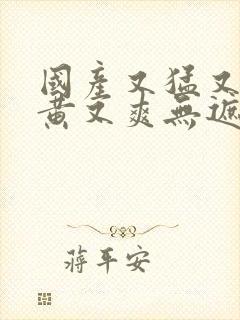 國產又猛又
黃又爽無遮
蔣平安